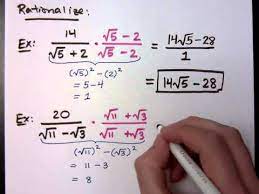 Rationalize:
Ex: 14/(√5 + 2) · (√5 − 2)/(√5 − 2) = (14√5 − 28)/1
(√5)² − (2)²
= 5 − 4
= 1
= 14√5 − 28
Ex: 20/(√11 − √3) · (√11 + √3)/(√11 + √3)
(√11)² − (√3)²
= 11 − 3
= 8